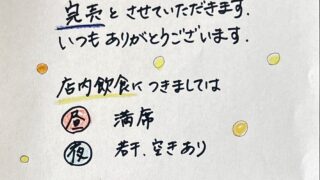 完売とさせていただきます.
いつもありがとうございます.
店内飲食につきましては
昼 満席
夜 若干、空きあり